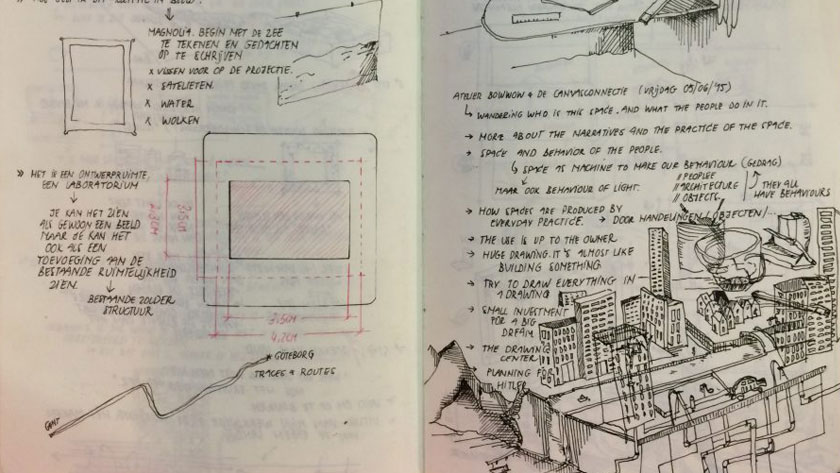 MAGNOLIA. BEGIN MET DE ZEE
TE TEKENEN EN GEDACHTEN
OP TE SCHRIJVEN
x VISSEN VOOR OP DE PROJECTIE.
x SATELIETEN
x WATER
x WOLKEN
» HET IS EEN ONTWERPRUIMTE,
EEN LABORATORIUM
JE KAN HET ZIEN
ALS GEWOON EEN BEELD
MAAR JE KAN HET
OOK ALS EEN
TOEVOEGING AAN DE
BESTAANDE RUIMTELIJKHEID
ZIEN.
BESTAANDE ZOLDER
STRUCTUUR
2.3CM
3.5CM
3.5CM
4.2CM
* GÖTEBORG
TRACES & ROUTES
GENT
ATELIER BOWWOW & DE CANVASCONNECTIE (VRIJDAG 05/06/'15)
WANDERING WHO IS THIS SPACE. AND WHAT THE PEOPLE DO IN IT.
→ MORE ABOUT THE NARRATIVES AND THE PRACTICE OF THE SPACE.
→ SPACE AND BEHAVIOR OF THE PEOPLE.
SPACE AS MACHINE TO MAKE OUR BEHAVIOUR (GEDRAG)
MAAR OOK BEHAVIOUR OF LIGHT.
// PEOPLE
// ARCHITECTURE
// OBJECTS
THEY ALL
HAVE BEHAVIOURS
→ HOW SPACES ARE PRODUCED BY
EVERYDAY PRACTICE. → DOOR HANDELINGEN / OBJECTEN /...
→ THE USE IS UP TO THE OWNER
→ HUGE DRAWING. IT'S ALMOST LIKE
BUILDING SOMETHING
→ TRY TO DRAW EVERYTHING IN
1 DRAWING
→ SMALL INVESTMENT
FOR A BIG
DREAM
→ THE DRAWING
CENTER
→ PLANNING FOR
HITLER